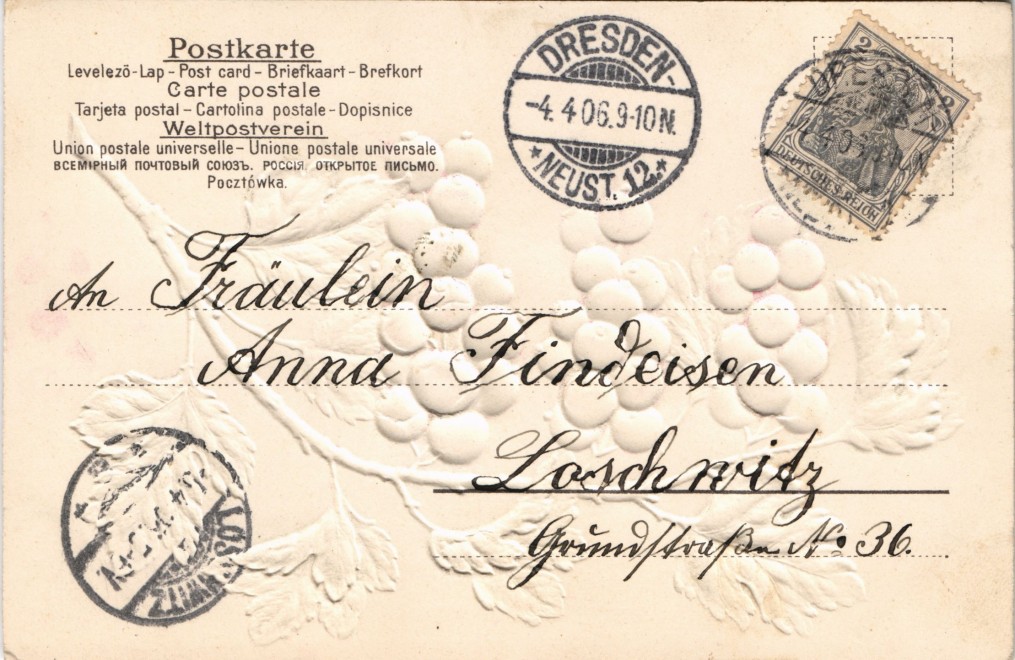 Postkarte
Levelező-Lap – Post card – Briefkaart – Brefkort
Carte postale
Tarjeta postal – Cartolina postale – Dopisnice
Weltpostverein
Union postale universelle – Unione postale universale
ВСЕМІРНЫЙ ПОЧТОВЫЙ СОЮЗЪ. РОССІЯ ОТКРЫТОЕ ПИСЬМО.
Pocztówka.
DRESDEN-
-4.4 06.9-10N.
*NEUST. 12.*
2 2
DEUTSCHES REICH
DRESDEN
An Fräulein
Anna Findeisen
Loschwitz
Grundstraße No: 36.
LOSCHWITZ